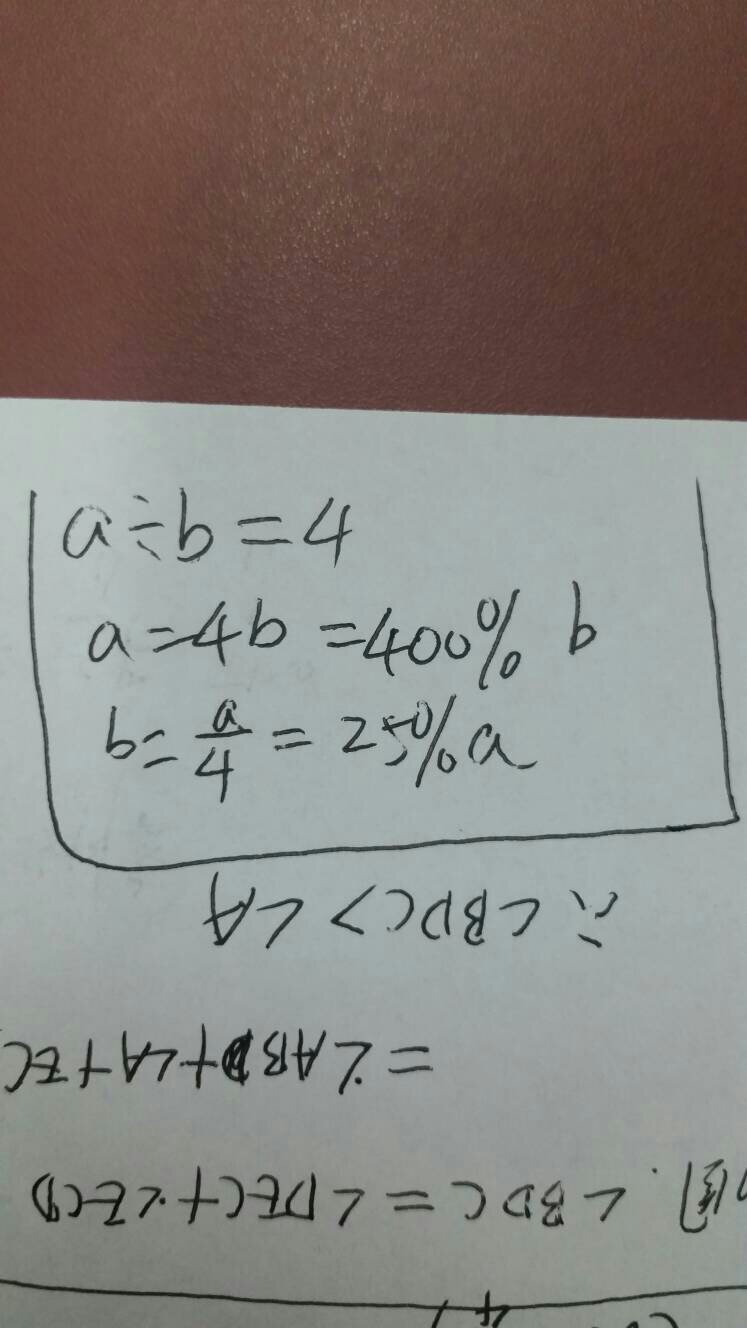 a÷b=4
a=4b=400% b
b=a/4=25%a
∴∠BDC>∠A
=∠ABD+∠A+EC
∠BDC=∠DEC+∠ECD